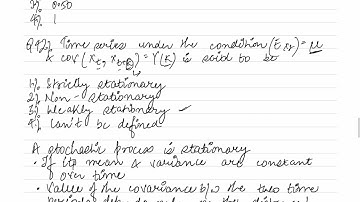 3% 0.50
4% 1
Q42% Time series under the condition (E xt) = μ
& cov (xt, xt+k) = γ(k) is said to be
1% Strictly stationary
2% Non-stationary
3% Weakly stationary ✓
4% Can't be defined
A stochastic process is stationary
• If its mean & variance are constant
over time
• Value of the covariance b/w the two time